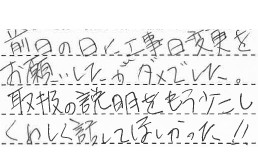 前日の日に工事日変更を
お願いしたがダメでした。
取扱の説明をもう少こし
くわしく話してほしかった!!